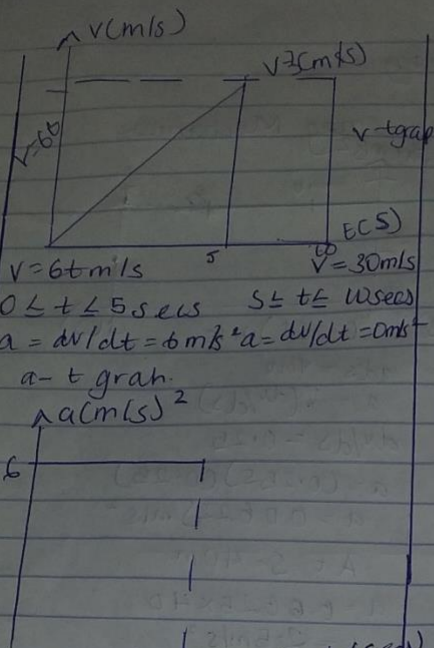 v(m/s)
V=30m/s
V=6t
v-tgrap
t(s)
5
10
V=6t m/s V=30m/s
0 ≤ t ≤ 5 secs 5 ≤ t ≤ 10 secs
a = dv/dt = 6 m/s² a = dv/dt = 0m/s²
a-t grah.
a(m/s)²
6